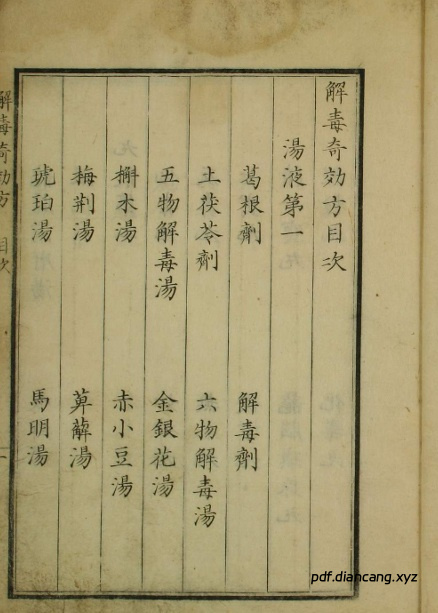 解毒奇効方目次
湯液第一
葛根劑
解毒劑
土茯苓劑
六物解毒湯
五物解毒湯
金銀花湯
槲木湯
赤小豆湯
梅荆湯
萆薢湯
琥珀湯
馬明湯
解毒奇効方
目次
pdf.diancang.xyz